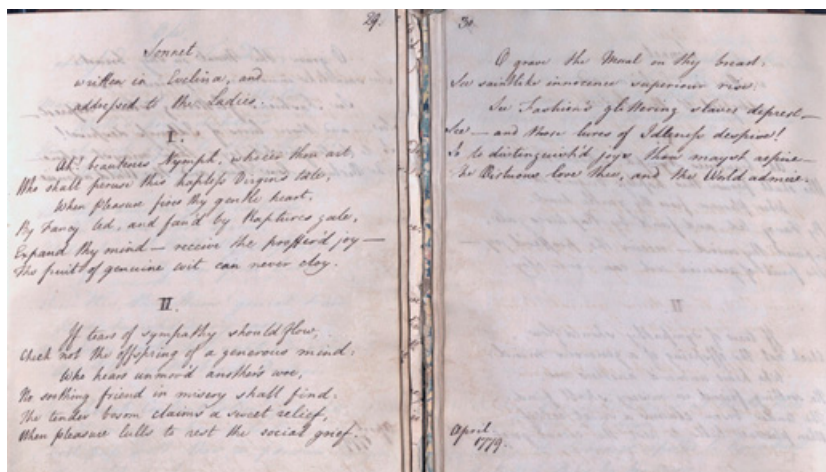 29.
Sonnet.
written in Evelina, and
addressed to the Ladies.
I.
Ah! beauteous Nymph, whoe'er thou art,
Who shall peruse this hapless Virgin's tale,
When pleasure fires thy gentle heart,
By Fancy led, and fan'd by Raptures gale,
Expand thy mind — receive the proffer'd joy —
The fruit of genuine wit can never cloy.
II.
If tears of sympathy should flow,
Check not the offspring of a generous mind:
Who hears unmov'd another's woe,
No soothing friend in misery shall find.
The tender bosom claims a sweet relief,
When pleasure lulls to rest the social grief.
30.
O grave the Moral on thy breast.
See saintlike innocence superiour rise:
See Fashion's glittering slaves deprest —
See — and those lures of Idleness despise!
So to distinguish'd joys thou mayst aspire —
The Virtuous love thee, and the World admire.
April
1779.